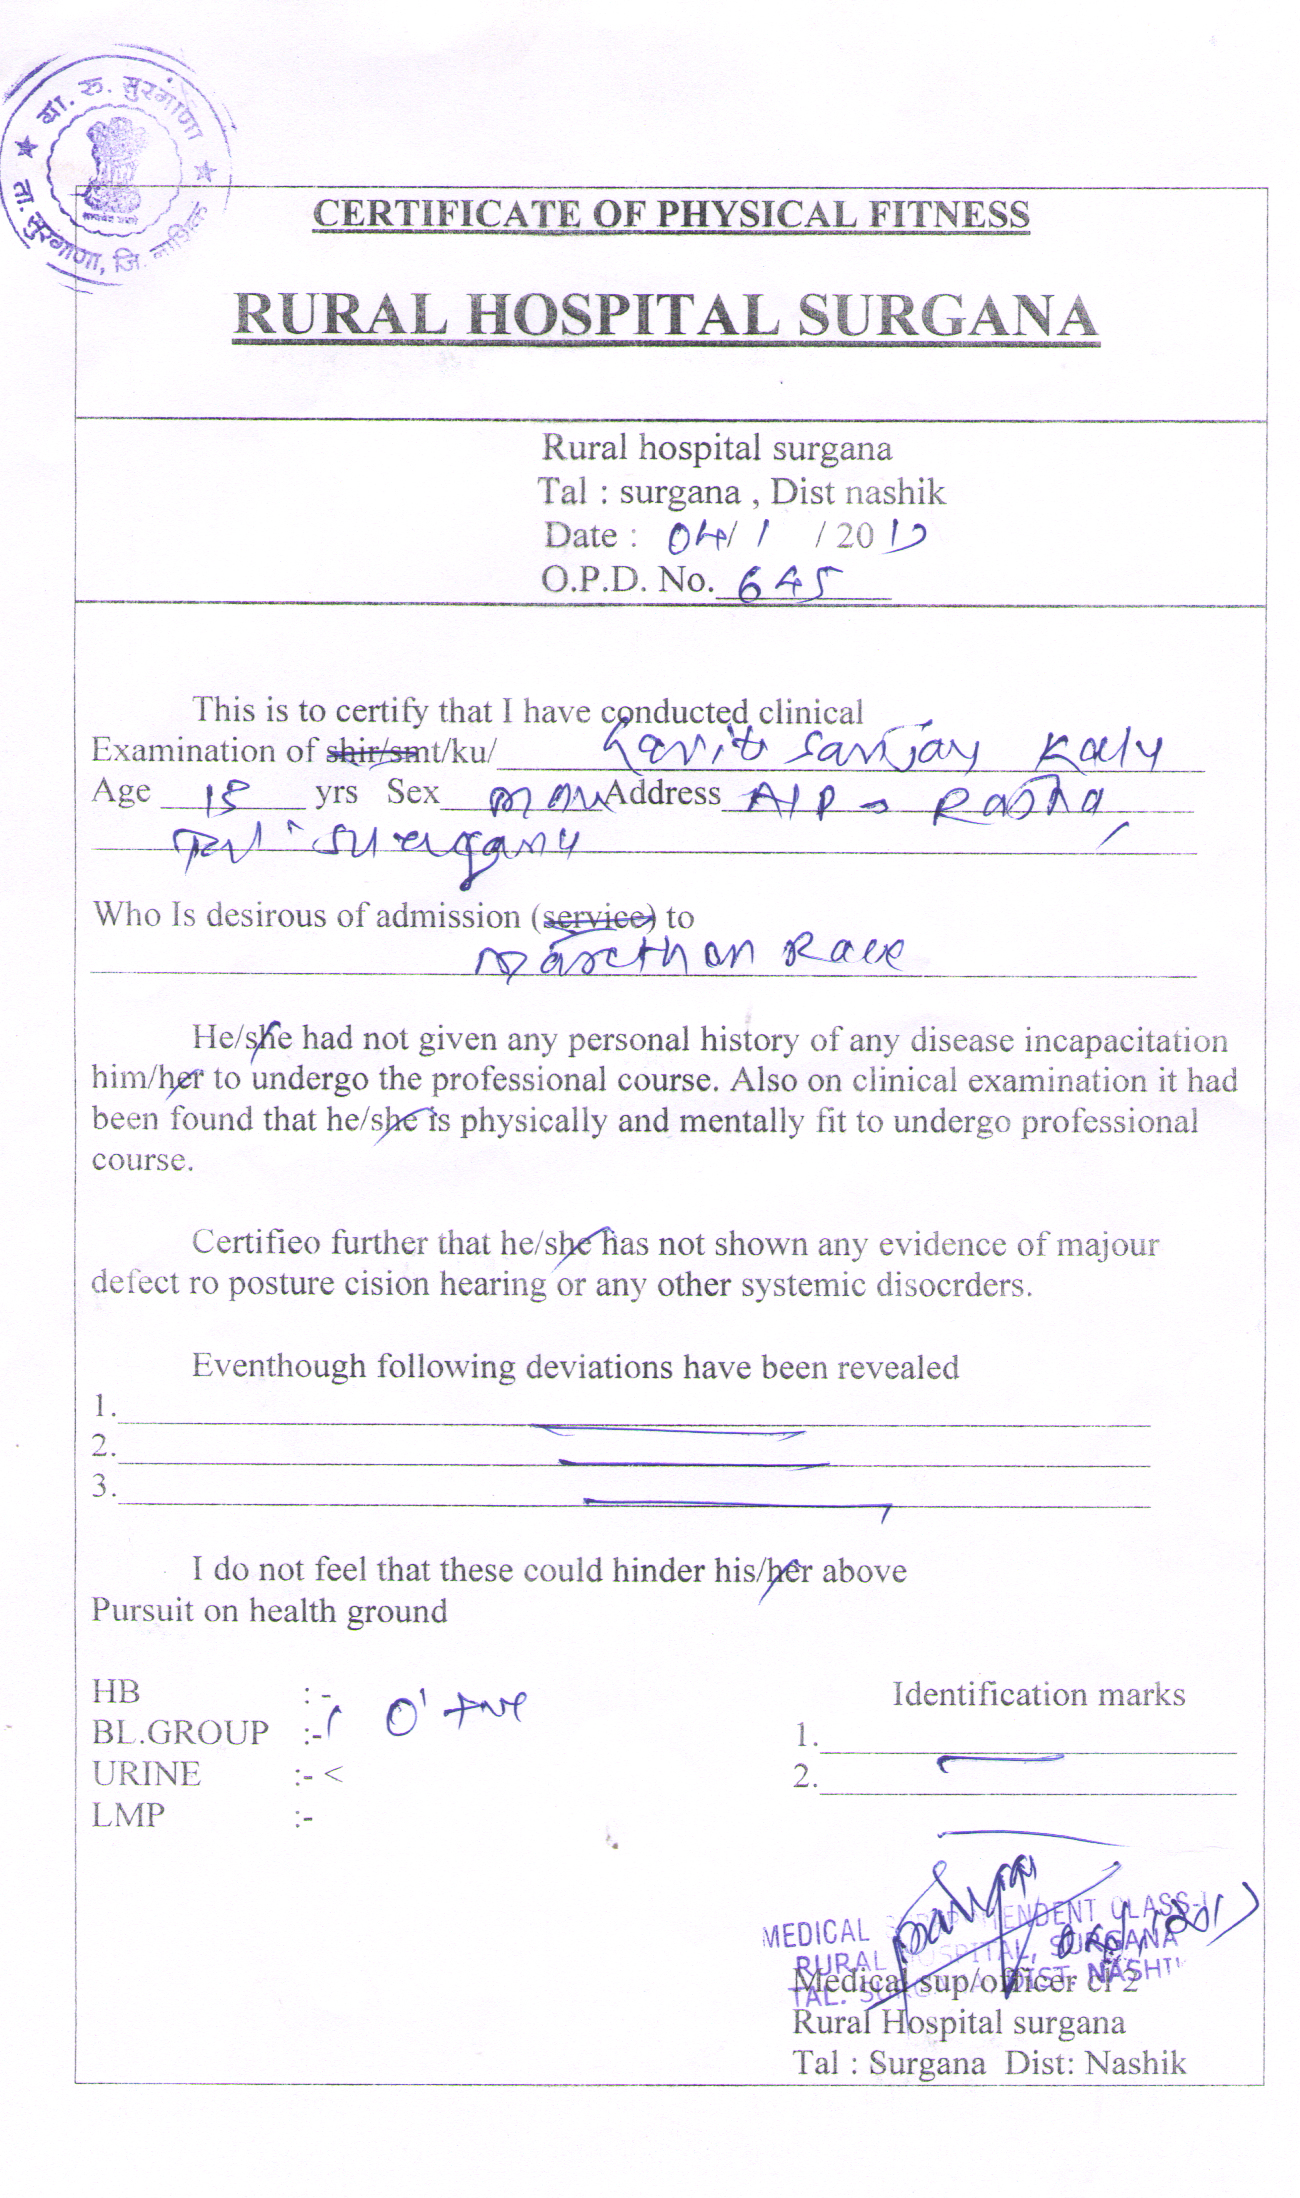 ग्रा. रु. सुरगाणा
ता. सुरगाणा, जि. नाशिक
CERTIFICATE OF PHYSICAL FITNESS
RURAL HOSPITAL SURGANA
Rural hospital surgana
Tal : surgana , Dist nashik
Date : 04/ 1 / 20
O.P.D. No. 645
This is to certify that I have conducted clinical
Examination of shir/smt/ku/ Sanjay
Age 18 yrs Sex Address A/P
Who Is desirous of admission (service) to
Marethon Race
He/she had not given any personal history of any disease incapacitation
him/her to undergo the professional course. Also on clinical examination it had
been found that he/she is physically and mentally fit to undergo professional
course.
Certifieo further that he/she has not shown any evidence of majour
defect ro posture cision hearing or any other systemic disocrders.
Eventhough following deviations have been revealed
1.
2.
3.
I do not feel that these could hinder his/her above
Pursuit on health ground
HB :-
BL.GROUP :- 'O' +ve
URINE :- <
LMP :-
Identification marks
1.
2.
MEDICAL SUPRINTENDENT CLASS-I
RURAL HOSPITAL, SURGANA
TAL. SURGANA DIST. NASHIK
Medical sup/officer cl 2
Rural Hospital surgana
Tal : Surgana Dist: Nashik